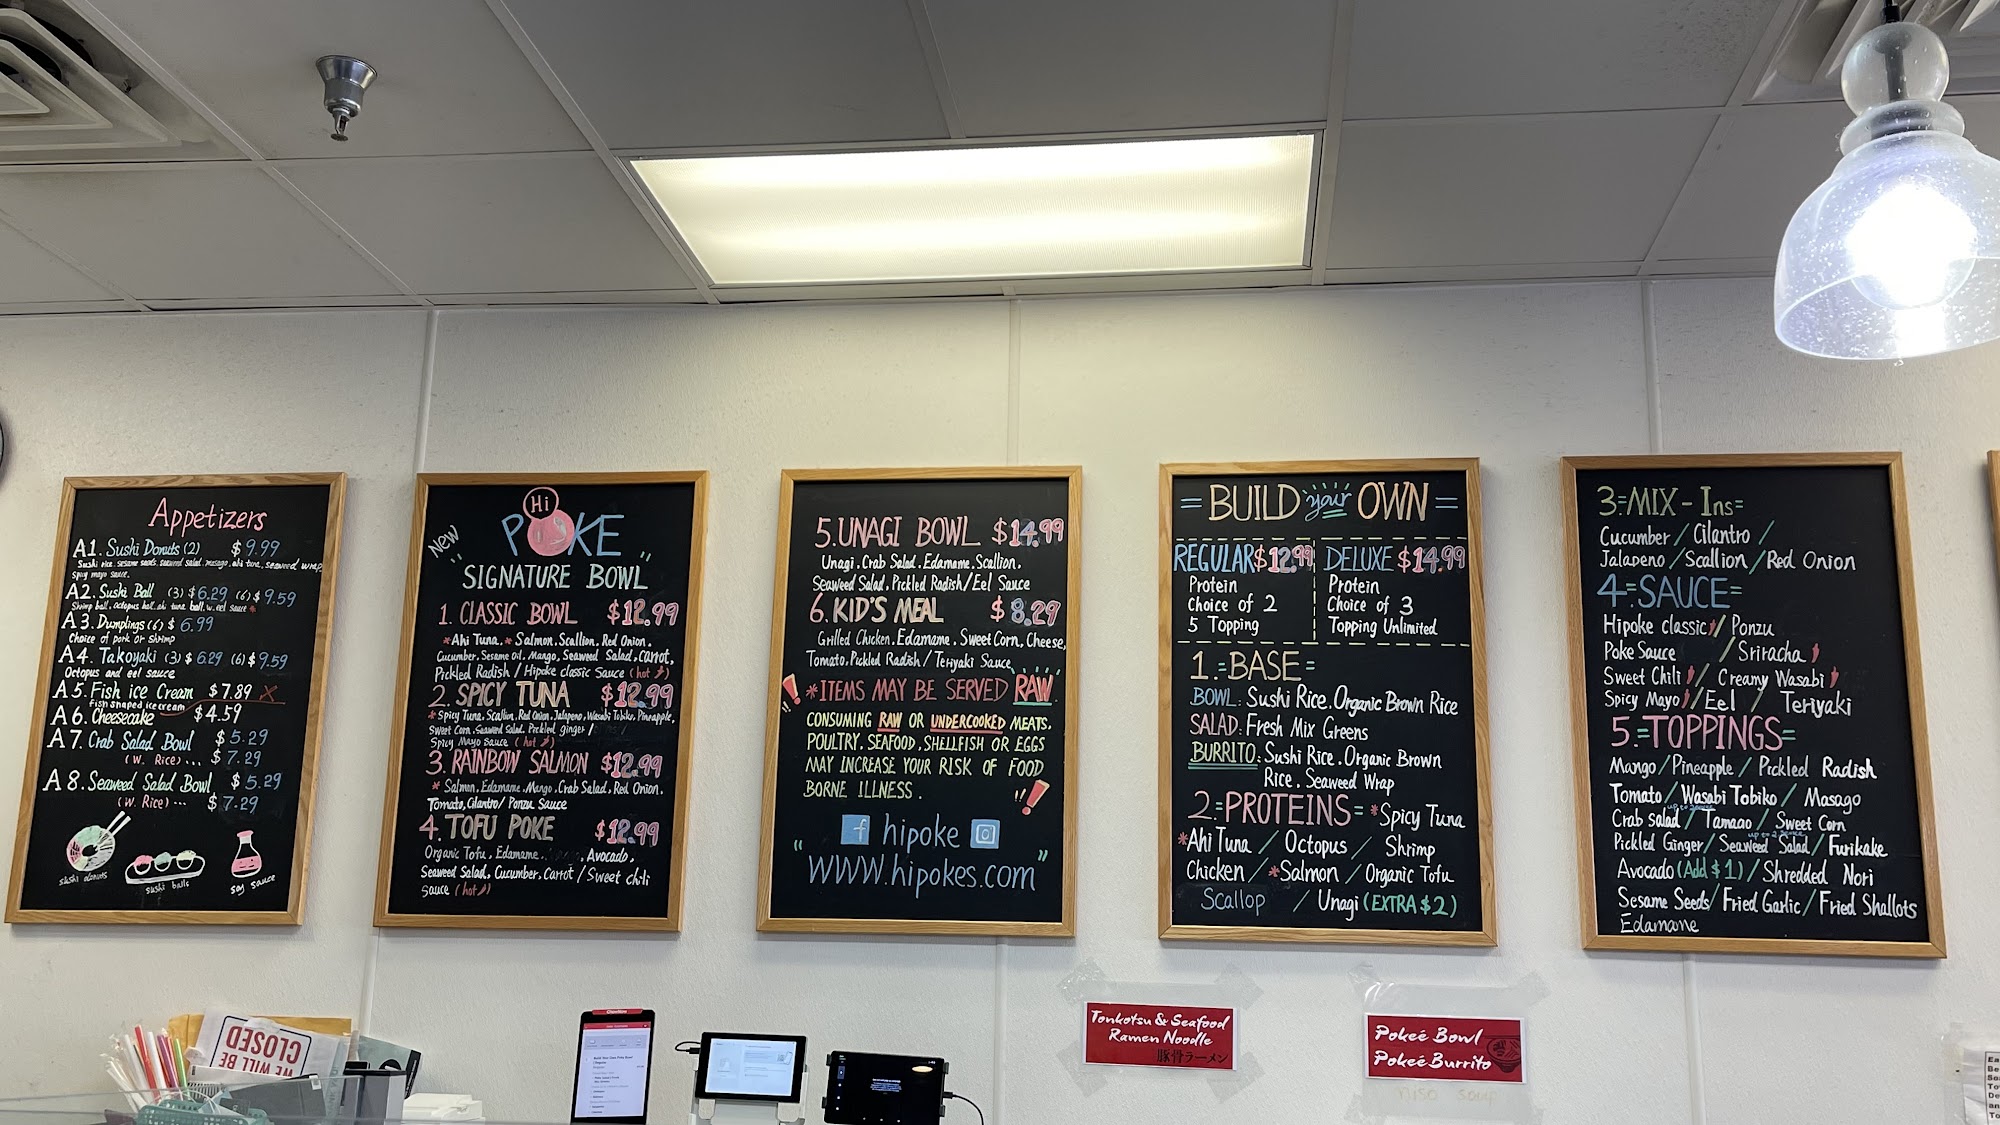 Appetizers
A1. Sushi Donuts (2) $9.99
Sushi rice. sesame seeds. seaweed salad. masago. ahi tuna. seaweed wrap.
spicy mayo sauce.
A2. Sushi Ball (3) $6.29 (6) $9.59
Shrimp ball, octopus ball. ahi tuna ball. w. eel sauce *
A3. Dumplings (6) $6.99
Choice of pork or shrimp
A4. Takoyaki (3) $6.29 (6) $9.59
Octopus and eel sauce
A5. Fish ice Cream $7.89 X
Fish shaped ice cream
A6. Cheesecake $4.59
A7. Crab Salad Bowl $5.29
(W. Rice)... $7.29
A8. Seaweed Salad Bowl $5.29
(W. Rice)... $7.29
sushi donuts
sushi balls
soy sauce
Hi
POKE
NEW
"SIGNATURE BOWL"
1. CLASSIC BOWL $12.99
*Ahi Tuna. *Salmon. Scallion. Red Onion.
Cucumber. Sesame Oil. Mango. Seaweed Salad. carrot,
Pickled Radish / Hipoke classic Sauce (hot)
2. SPICY TUNA $12.99
*Spicy Tuna. Scallion. Red Onion. Jalapeno. Wasabi Tobiko. Pineapple.
Sweet Corn. Seaweed Salad. Pickled ginger /
Spicy Mayo Sauce (hot)
3. RAINBOW SALMON $12.99
*Salmon. Edamame. Mango. Crab Salad. Red Onion.
Tomato, Cilantro / Ponzu Sauce
4. TOFU POKE $12.99
Organic Tofu, Edamame. Avocado,
Seaweed Salad, Cucumber. Carrot / Sweet chili
Sauce (hot)
5. UNAGI BOWL $14.99
Unagi. Crab Salad. Edamame. Scallion.
Seaweed Salad. Pickled Radish/Eel Sauce
6. KID'S MEAL $8.29
Grilled Chicken. Edamame. Sweet Corn, Cheese,
Tomato, Pickled Radish / Teriyaki Sauce
*ITEMS MAY BE SERVED RAW
CONSUMING RAW OR UNDERCOOKED MEATS.
POULTRY. SEAFOOD. SHELLFISH OR EGGS
MAY INCREASE YOUR RISK OF FOOD
BORNE ILLNESS.
f hipoke
"WWW.hipokes.com"
=BUILD your OWN=
REGULAR $12.99
Protein
Choice of 2
5 Topping
DELUXE $14.99
Protein
Choice of 3
Topping Unlimited
1.=BASE=
BOWL: Sushi Rice. Organic Brown Rice
SALAD: Fresh Mix Greens
BURRITO: Sushi Rice. Organic Brown
Rice. Seaweed Wrap
2=PROTEINS= *Spicy Tuna
*Ahi Tuna / Octopus / Shrimp
Chicken / *Salmon / Organic Tofu
Scallop / Unagi (EXTRA $2)
3=MIX-Ins=
Cucumber / Cilantro /
Jalapeno / Scallion / Red Onion
4=SAUCE=
Hipoke classic / Ponzu
Poke Sauce / Sriracha
Sweet Chili / Creamy Wasabi
Spicy Mayo / Eel / Teriyaki
5.=TOPPINGS=
Mango / Pineapple / Pickled Radish
Tomato / Wasabi Tobiko / Masago
Crab Salad / Tamago / Sweet Corn
Pickled Ginger / Seaweed Salad / Furikake
Avocado (Add $1) / Shredded Nori
Sesame Seeds / Fried Garlic / Fried Shallots
Edamame
WE WILL BE
CLOSED
Tonkotsu & Seafood
Ramen Noodle
豚骨ラーメン
Pokeé Bowl
Pokeé Burrito
miso soup